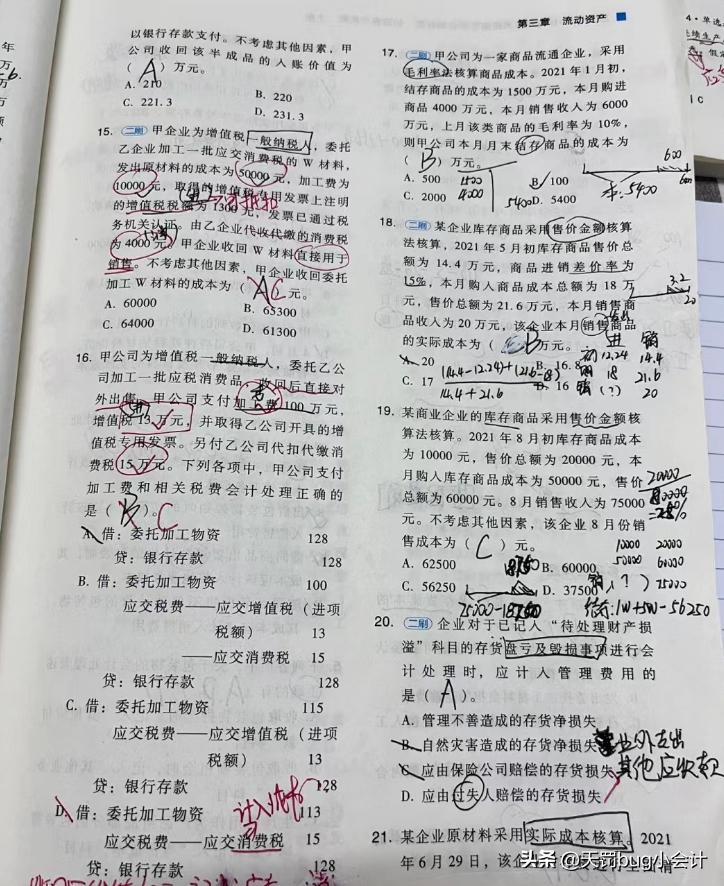 第三章 流动资产
以银行存款支付。不考虑其他因素，甲
公司收回该半成品的入账价值为
（ A ）万元。
A. 210
B. 220
C. 221.3
D. 231.3
15. 二刷 甲企业为增值税一般纳税人，委托
乙企业加工一批应交消费税的 W 材料，
发出原材料的成本为 50000 元，加工费为
10000 元，取得的增值税专用发票上注明
的增值税税额为 1300 元，发票已通过税
务机关认证。由乙企业代收代缴的消费税
为 4000 元，甲企业收回 W 材料直接用于
销售。不考虑其他因素，甲企业收回委托
加工 W 材料的成本为（ A C ）元。
A. 60000
B. 65300
C. 64000
D. 61300
16. 甲公司为增值税一般纳税人，委托乙公
司加工一批应税消费品，收回后直接对
外出售。甲公司支付加工费 100 万元，
增值税 13 万元，并取得乙公司开具的增
值税专用发票。另付乙公司代扣代缴消
费税 15 万元。下列各项中，甲公司支付
加工费和相关税费会计处理正确的
是（ B ）。 C
A. 借：委托加工物资 128
贷：银行存款 128
B. 借：委托加工物资 100
应交税费——应交增值税（进项
税额） 13
——应交消费税 15
贷：银行存款 128
C. 借：委托加工物资 115
应交税费——应交增值税（进项
税额） 13
贷：银行存款 128
D. 借：委托加工物资 113
应交税费——应交消费税 15
贷：银行存款 128
17. 二刷 甲公司为一家商品流通企业，采用
毛利率法核算商品成本。2021 年 1 月初，
结存商品的成本为 1500 万元，本月购进
商品 4000 万元，本月销售收入为 6000
万元，上月该类商品的毛利率为 10%，
则甲公司本月月末结存商品的成本为
（ B ）万元。
600
A. 500
1500
B. 100
C. 2000
4000
5400
D. 5400
本:5400
18. 二刷 某企业库存商品采用售价金额核算
法核算，2021 年 5 月初库存商品售价总
额为 14.4 万元，商品进销差价率为
15%，本月购入商品成本总额为 18 万
元，售价总额为 21.6 万元，本月销售商
品收入为 20 万元，该企业本月销售商品
的实际成本为（ B ）万元。
3.2
20
进 销
初 12.24 14.4
18 21.6
销 (?) 20
A. 20
B. 16.8
C. 17
D. 16
(14.4-12.24)+(21.6-18)
14.4+21.6
19. 某商业企业的库存商品采用售价金额核
算法核算。2021 年 8 月初库存商品成本
为 10000 元，售价总额为 20000 元，本
月购入库存商品成本为 50000 元，售价
总额为 60000 元。8 月销售收入为 75000
元。不考虑其他因素，该企业 8 月份销
售成本为（ C ）元。
20000
80000
=25%
10000 20000
50000 60000
销(?) 75000
A. 62500
18750
B. 60000
C. 56250
D. 37500
75000-18750
20. 二刷 企业对于已记入“待处理财产损
溢”科目的存货盘亏及毁损事项进行会
计处理时，应计入管理费用的
是（ A ）。
A. 管理不善造成的存货净损失
B. 自然灾害造成的存货净损失
业外支出
C. 应由保险公司赔偿的存货损失
其他应收款
D. 应由过失人赔偿的存货损失
21. 某企业原材料采用实际成本核算。2021
年 6 月 29 日，该企
头条 @天罚bug小会计